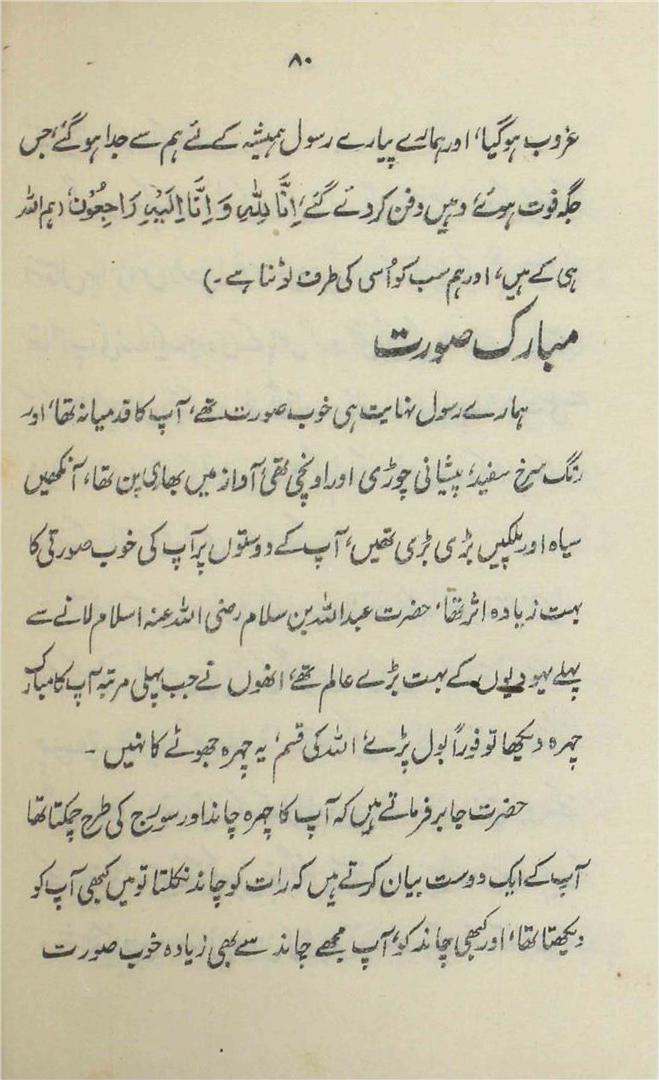 ۸۰
غروب ہوگیا، اور ہمارے پیارے رسول ہمیشہ کے لئے ہم سے جدا ہو گئے، جس
جگہ فوت ہوئے وہیں دفن کر دئے گئے، اِنَّا لِلّٰہِ وَ اِنَّا اِلَیْہِ رَاجِعُوْن، (ہم اللہ
ہی کے ہیں، اور ہم سب کو اُسی کی طرف لوٹنا ہے۔)
مبارک صورت
ہمارے رسول نہایت ہی خوب صورت تھے، آپ کا قد میانہ تھا، اور
رنگ سرخ سفید، پیشانی چوڑی اور اونچی تھی آواز میں بھاری پن تھا، آنکھیں
سیاہ اور پلکیں بڑی بڑی تھیں، آپ کے دوستوں پر آپ کی خوب صورتی کا
بہت زیادہ اثر تھا، حضرت عبداللہ بن سلام رضی اللہ عنہ اسلام لانے سے
پہلے یہودیوں کے بہت بڑے عالم تھے، انھوں نے جب پہلی مرتبہ آپ کا مبارک
چہرہ دیکھا تو فوراً بول پڑے، اللہ کی قسم، یہ چہرہ جھوٹے کا نہیں ۔
حضرت جابر فرماتے ہیں کہ آپ کا چہرہ چاند اور سورج کی طرح چمکتا تھا
آپ کے ایک دوست بیان کرتے ہیں کہ رات کو چاند نکلتا تو میں کبھی آپ کو
دیکھتا تھا، اور کبھی چاند کو، آپ مجھے چاند سے بھی زیادہ خوب صورت